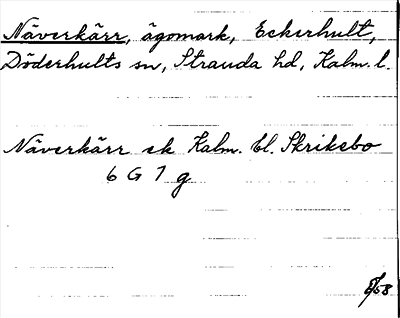 Näverkärr, ägomark, Eckerhult,
Döderhults sn, Stranda hd, Kalm. l.
Näverkärr ek Kalm. bl. Skrikebo
6 G 7 g